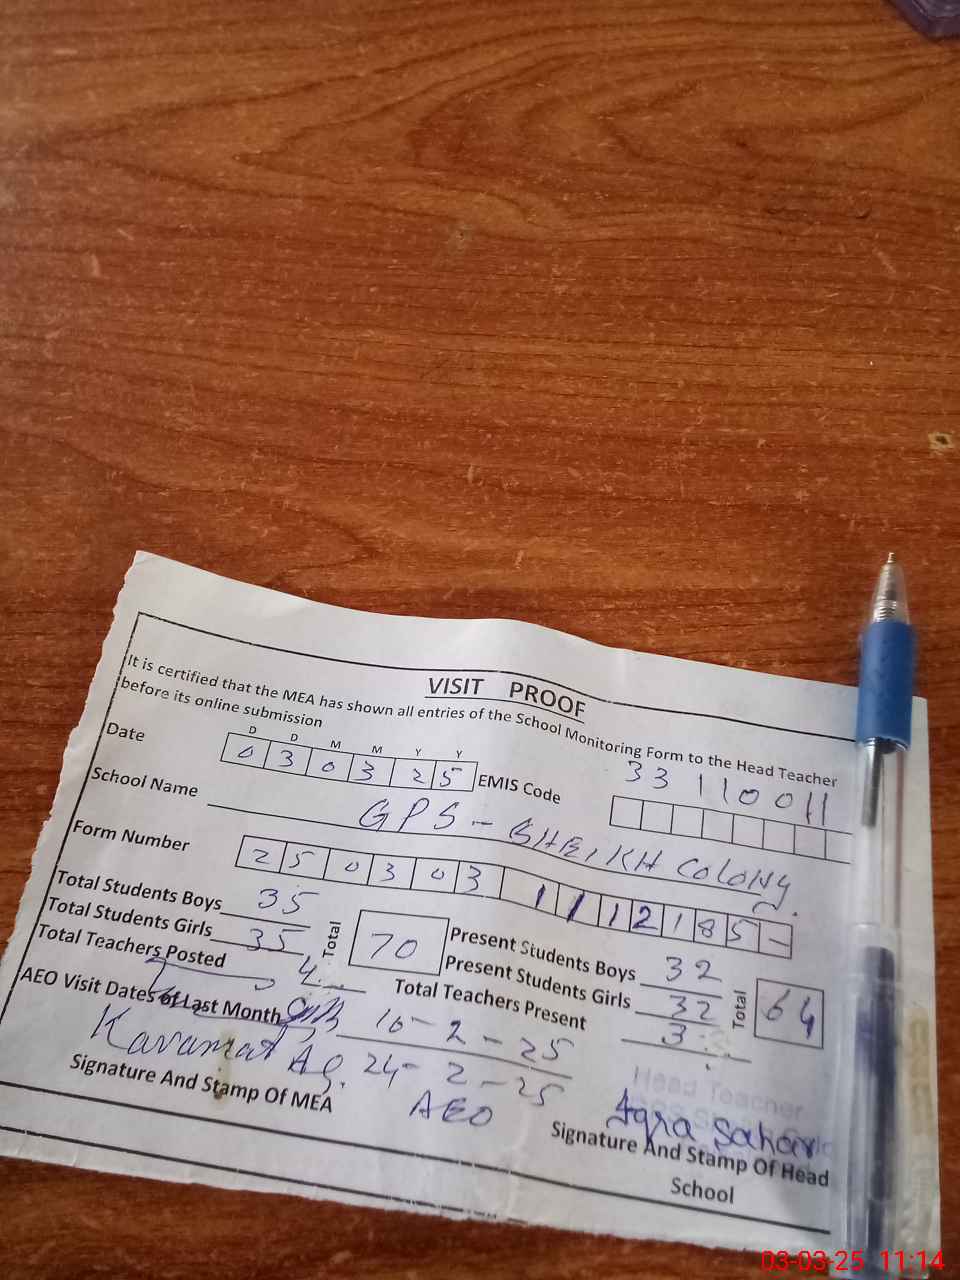 VISIT PROOF
It is certified that the MEA has shown all entries of the School Monitoring Form to the Head Teacher
before its online submission
D D M M Y Y
Date 0 3 0 3 2 5 EMIS Code 33110011
School Name GPS - SHEIKH COLONY.
Form Number 2 5 0 3 0 3 1 1 1 2 1 8 5 -
Total Students Boys 35 Present Students Boys 32
Total Students Girls 35 Total 70 Present Students Girls 32 Total 64
Total Teachers Posted 4 Total Teachers Present 3
AEO Visit Dates of Last Month 16-2-25
Karamat Ag. 24-2-25
AEO
Head Teacher
Iqra Sahar
Signature And Stamp Of MEA
Signature And Stamp Of Head
School
03-03-25 11:14